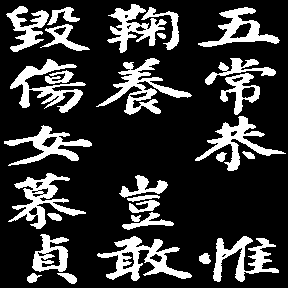 五常恭惟
鞠養豈敢
毀傷女慕貞